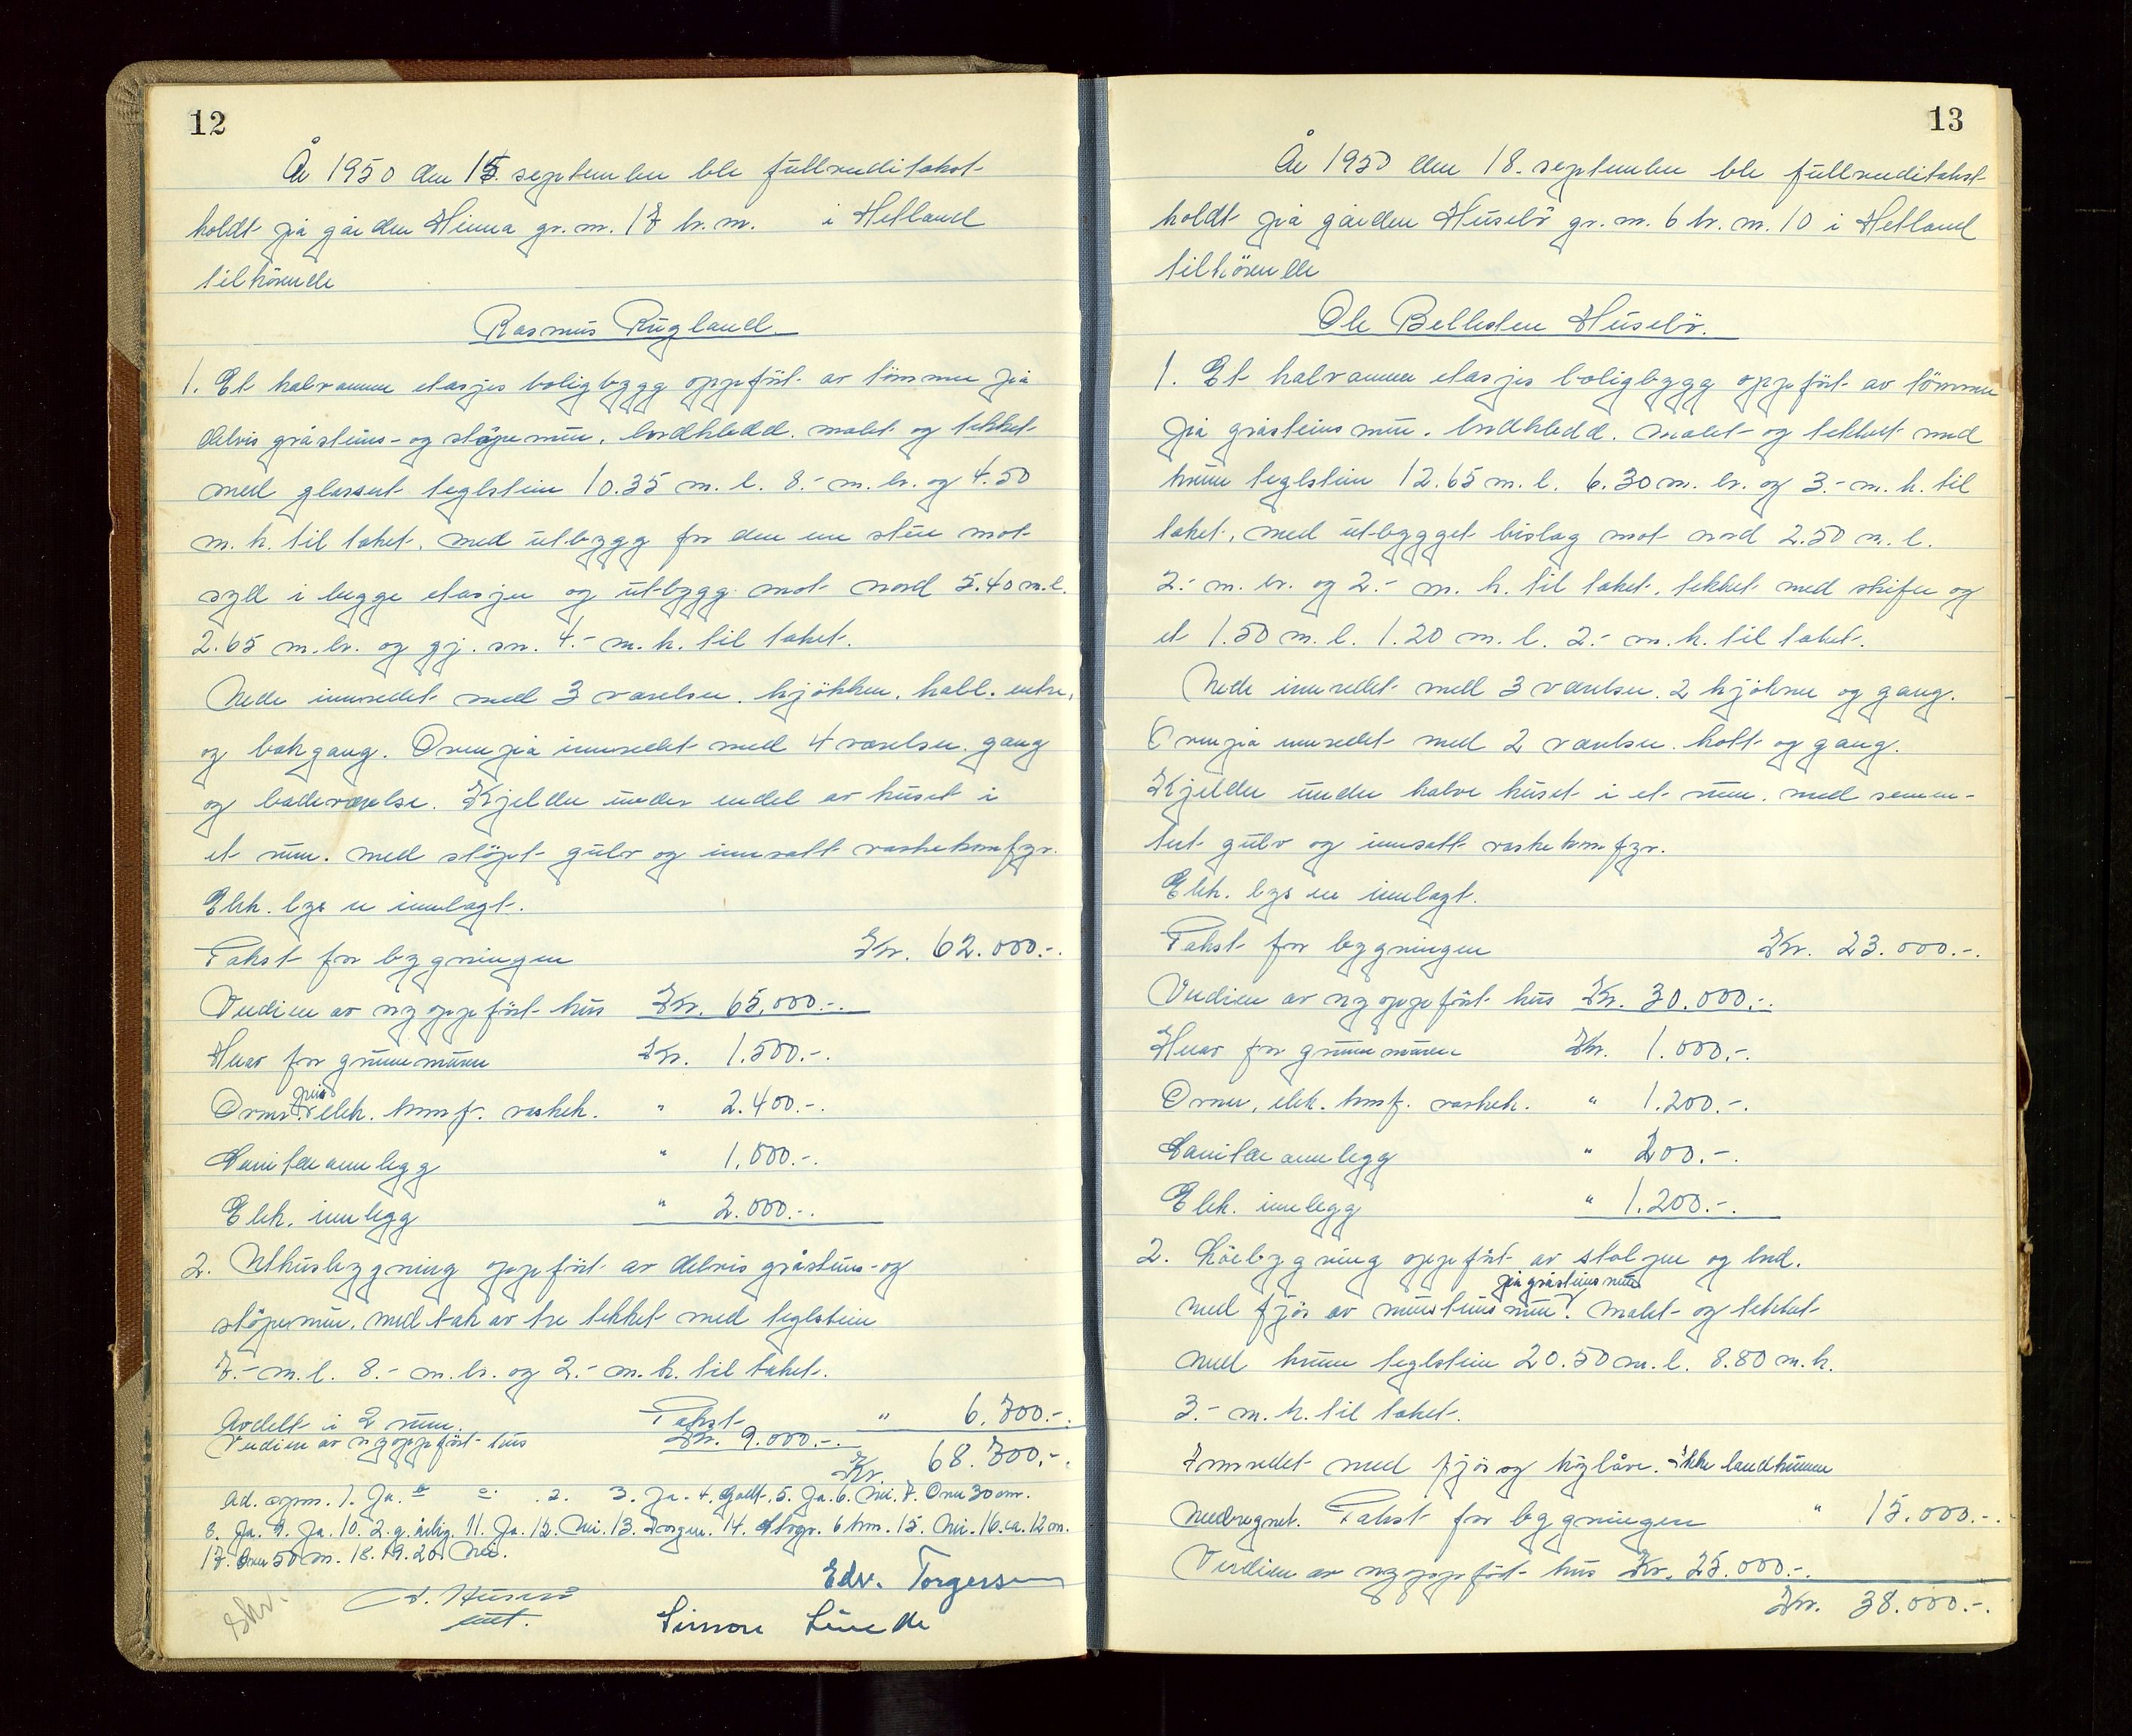 12
År 1950 den 15. september ble fullverditakst
holdt på gården Hinna gr. nr. 17 br. nr. i Hetland
tilhörende
Rasmus Rugland
1. Et halvannen etasjes boligbygg oppfört av tömmer på
delvis gråsteins- og stöpemur, bordkledd, malet og tekket
med glassert teglstein 10.35 m. l. 8.- m. br. og 4.50
m. h. til taket, med utbygg for den ene stue mot
syd i begge etasjer og utbygg mot nord 5.40 m. l.
2.65 m. br. og gj. sn. 4.- m. h. til taket.
Nede innredet med 3 værelser, kjökken, hall, entre,
og bakgang. Ovenpå innredet med 4 værelser, gang
og badeværelse. Kjelder under endel av huset i
et rum, med stöpt gulv og innsatt vaskekomfyr.
Elek. lys er innlagt.
Takst for bygningen Kr. 62.000.-.
Verdien av nyoppfört hus Kr. 65.000.-.
Herav for grunnmuren Kr. 1.500.-.
Ovner, peis elek. komf. vaskek. " 2.400.-.
Sanitæranlegg " 1.000.-.
Elek. innlegg " 2.000.-.
2. Uthusbygning oppfört av delvis gråsteins- og
stöpemur, med tak av tre tekket med teglstein
7.- m. l. 8.- m. br. og 2.- m. h. til taket.
Avdelt i 2 rum. Takst " 6.700.-.
Verdien av nyoppfört hus Kr. 9.000.-.
Kr. 68.700.-.
Ad. spm. 1. Ja. 2. 3. Ja. 4. Godt. 5. Ja. 6. Nei. 7. Over 30 cm.
8. Ja. 9. Ja. 10. 2. g. årlig. 11. Ja. 12. Nei. 13. 14. 6 km. 15. Nei. 16. ca. 12 m.
17. Over 50 m. 18. 19. 20. Nei.
Edv. Torgersen
Simon Lunde
skr.
13
År 1950 den 18. september ble fullverditakst
holdt på gården Husebö gr. nr. 6 br. nr. 10 i Hetland
tilhörende
Ole Bellesten Husebö.
1. Et halvannen etasjes boligbygg oppfört av tömmer
på gråsteinsmur, bordkledd, malet og tekket med
krum teglstein 12.65 m. l. 6.30 m. br. og 3.- m. h. til
taket, med utbygget bislag mot nord 2.50 m. l.
2.- m. br. og 2.- m. h. til taket, tekket med skifer og
et 1.50 m. l. 1.20 m. l. 2.- m. h. til taket.
Nede innredet med 3 værelser, 2 kjökner og gang.
Ovenpå innredet med 2 værelser, kott og gang.
Kjelder under halve huset i et rum, med semen-
tert gulv og innsatt vaskekomfyr.
Elek. lys er innlagt.
Takst for bygningen Kr. 23.000.-.
Verdien av nyoppfört hus Kr. 30.000.-.
Herav for grunnmuren Kr. 1.000.-.
Ovner, elek. komf. vaskek. " 1.200.-.
Sanitæranlegg " 200.-.
Elek. innlegg " 1.200.-.
2. Löebygning oppfört av stolper og bord,
på gråsteinsmur
med fjös av mursteinsmur, malet og tekket
med krum teglstein 20.50 m. l. 8.80 m. h.
3.- m. h. til taket.
Innredet med fjös og höylåve. Ikke landkummen
medregnet. Takst for bygningen " 15.000.-.
Verdien av nyoppfört hus Kr. 25.000.-.
Kr. 38.000.-.